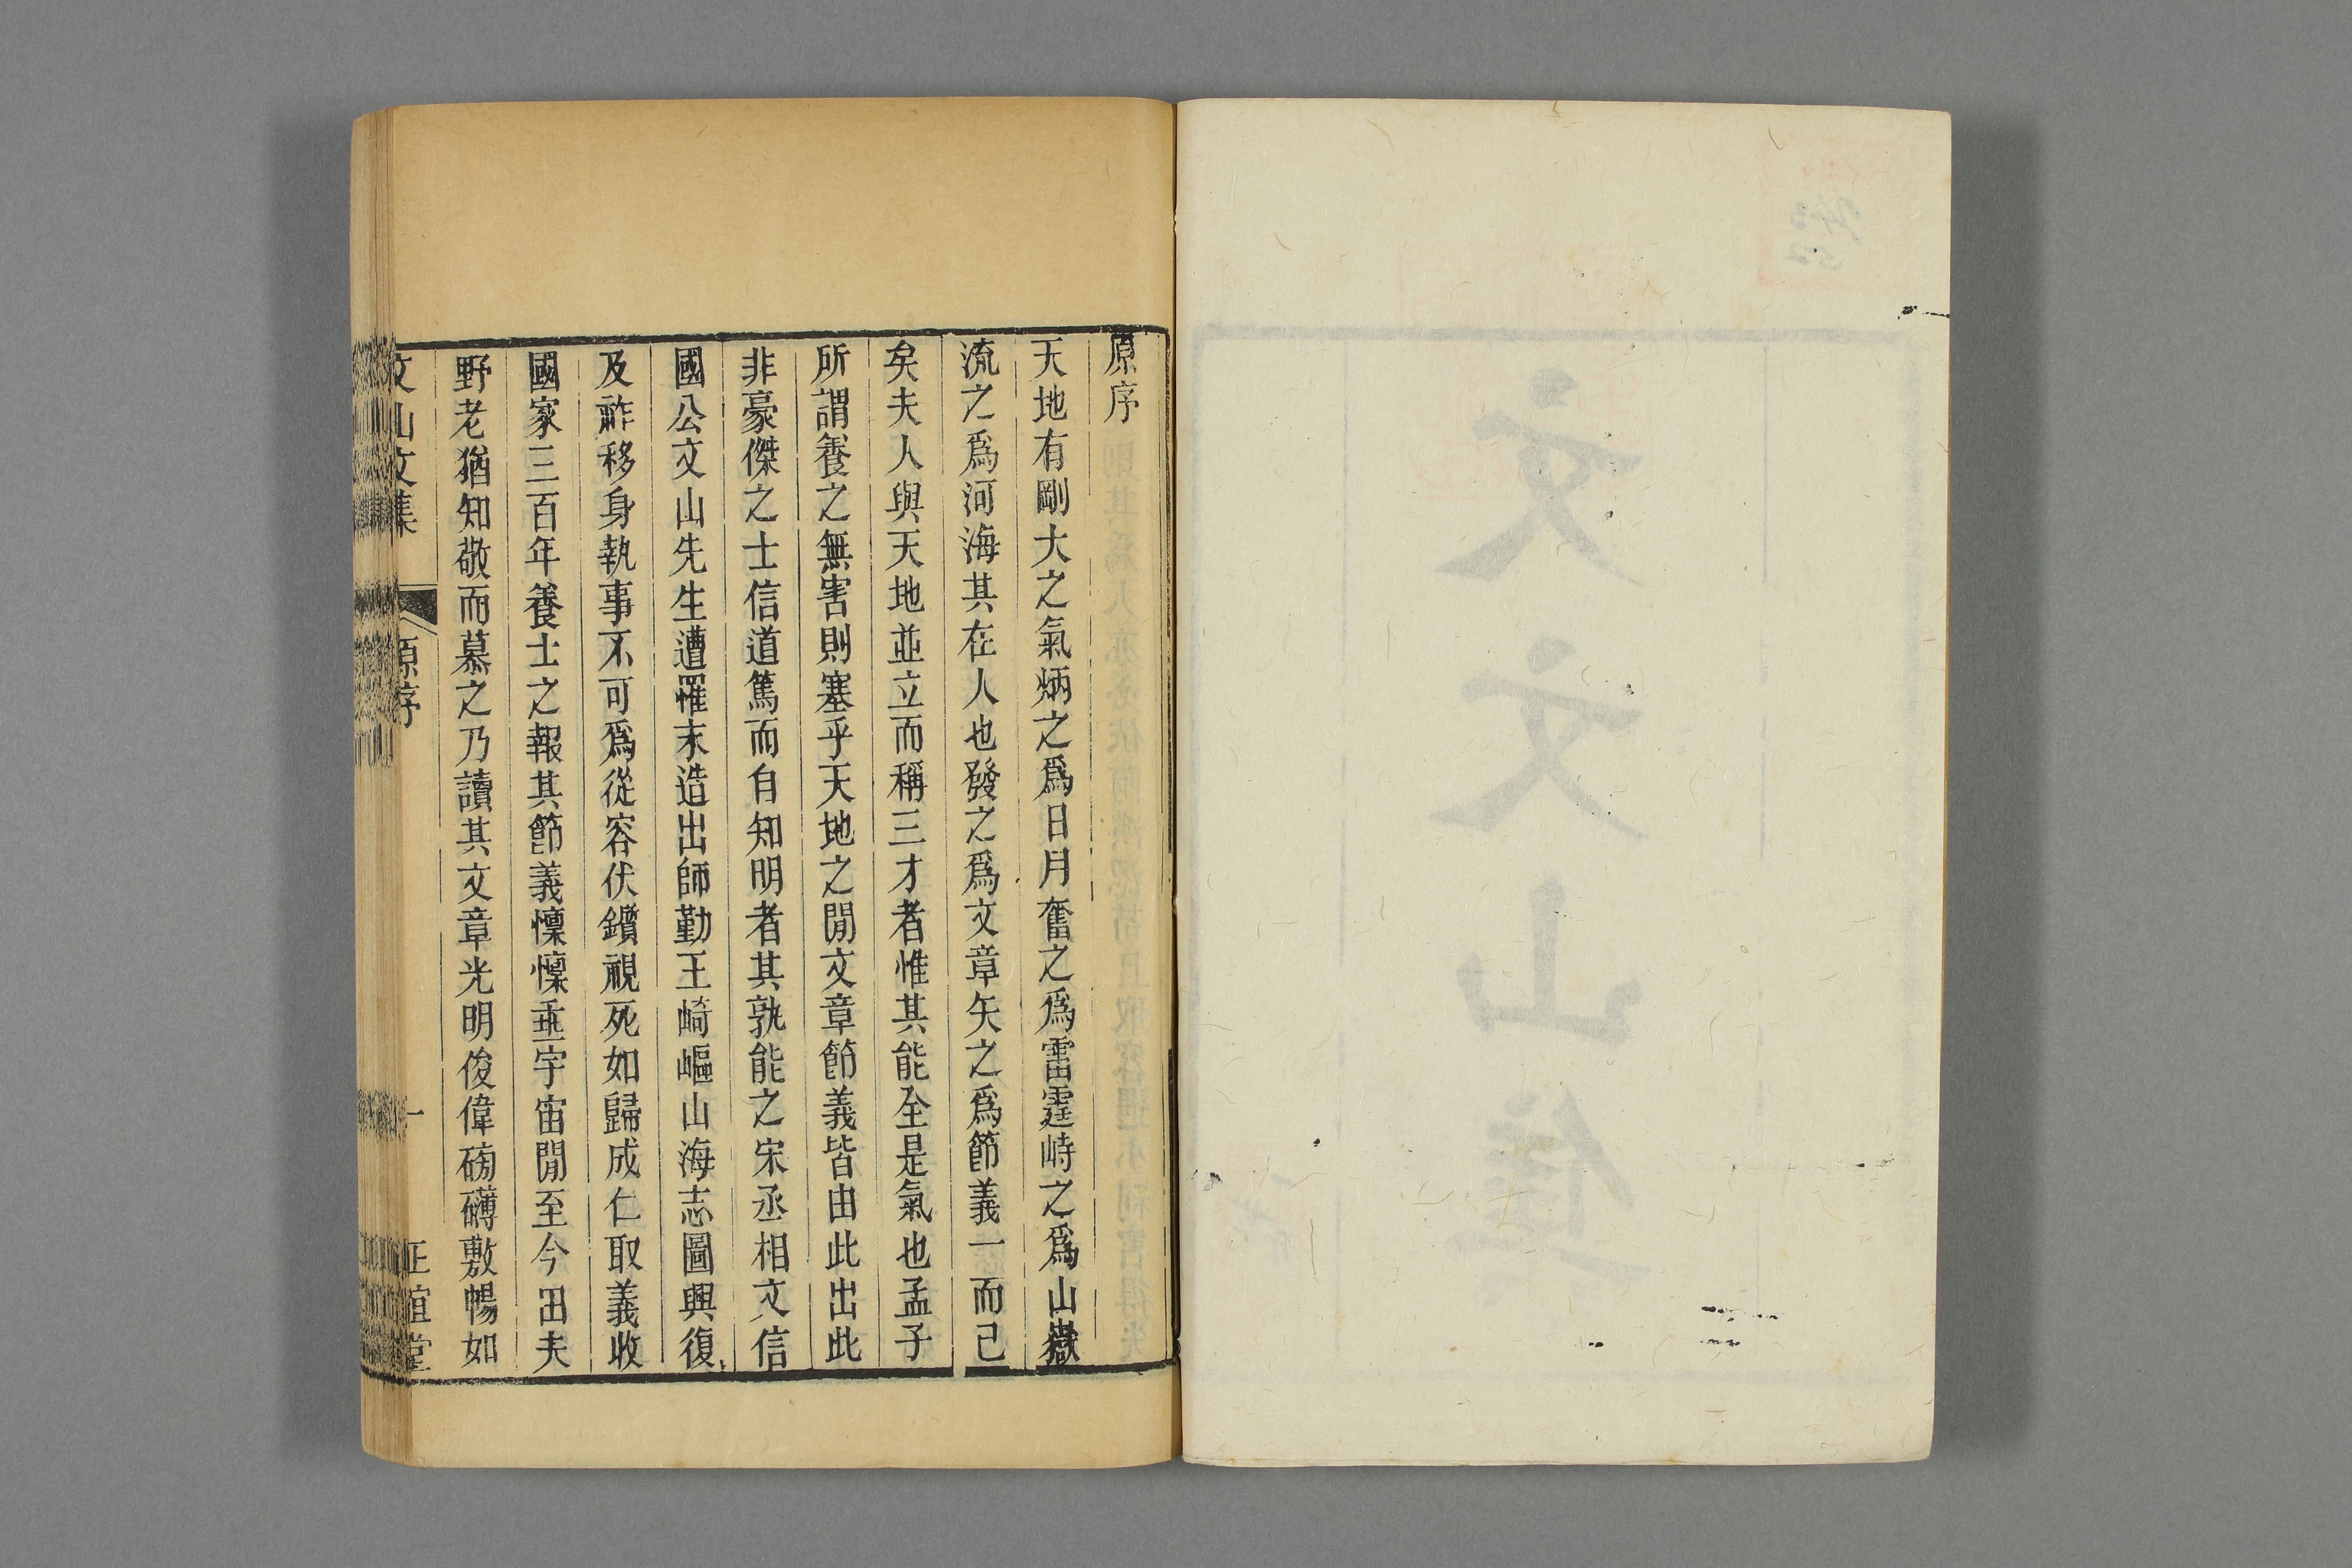 原序
天地有剛大之氣炳之爲日月奮之爲雷霆峙之爲山嶽
流之爲河海其在人也發之爲文章矢之爲節義一而已
矣夫人與天地並立而稱三才者惟其能全是氣也孟子
所謂養之無害則塞乎天地之閒文章節義皆由此出此
非豪傑之士信道篤而自知明者其孰能之宋丞相文信
國公文山先生遭罹末造出師勤王崎嶇山海志圖興復
及祚移身執事不可爲從容伏鑕視死如歸成仁取義收
國家三百年養士之報其節義懍懍垂宇宙閒至今田夫
野老猶知敬而慕之乃讀其文章光明俊偉磅礴敷暢如
文山文集 原序 一 正誼堂
文文山集